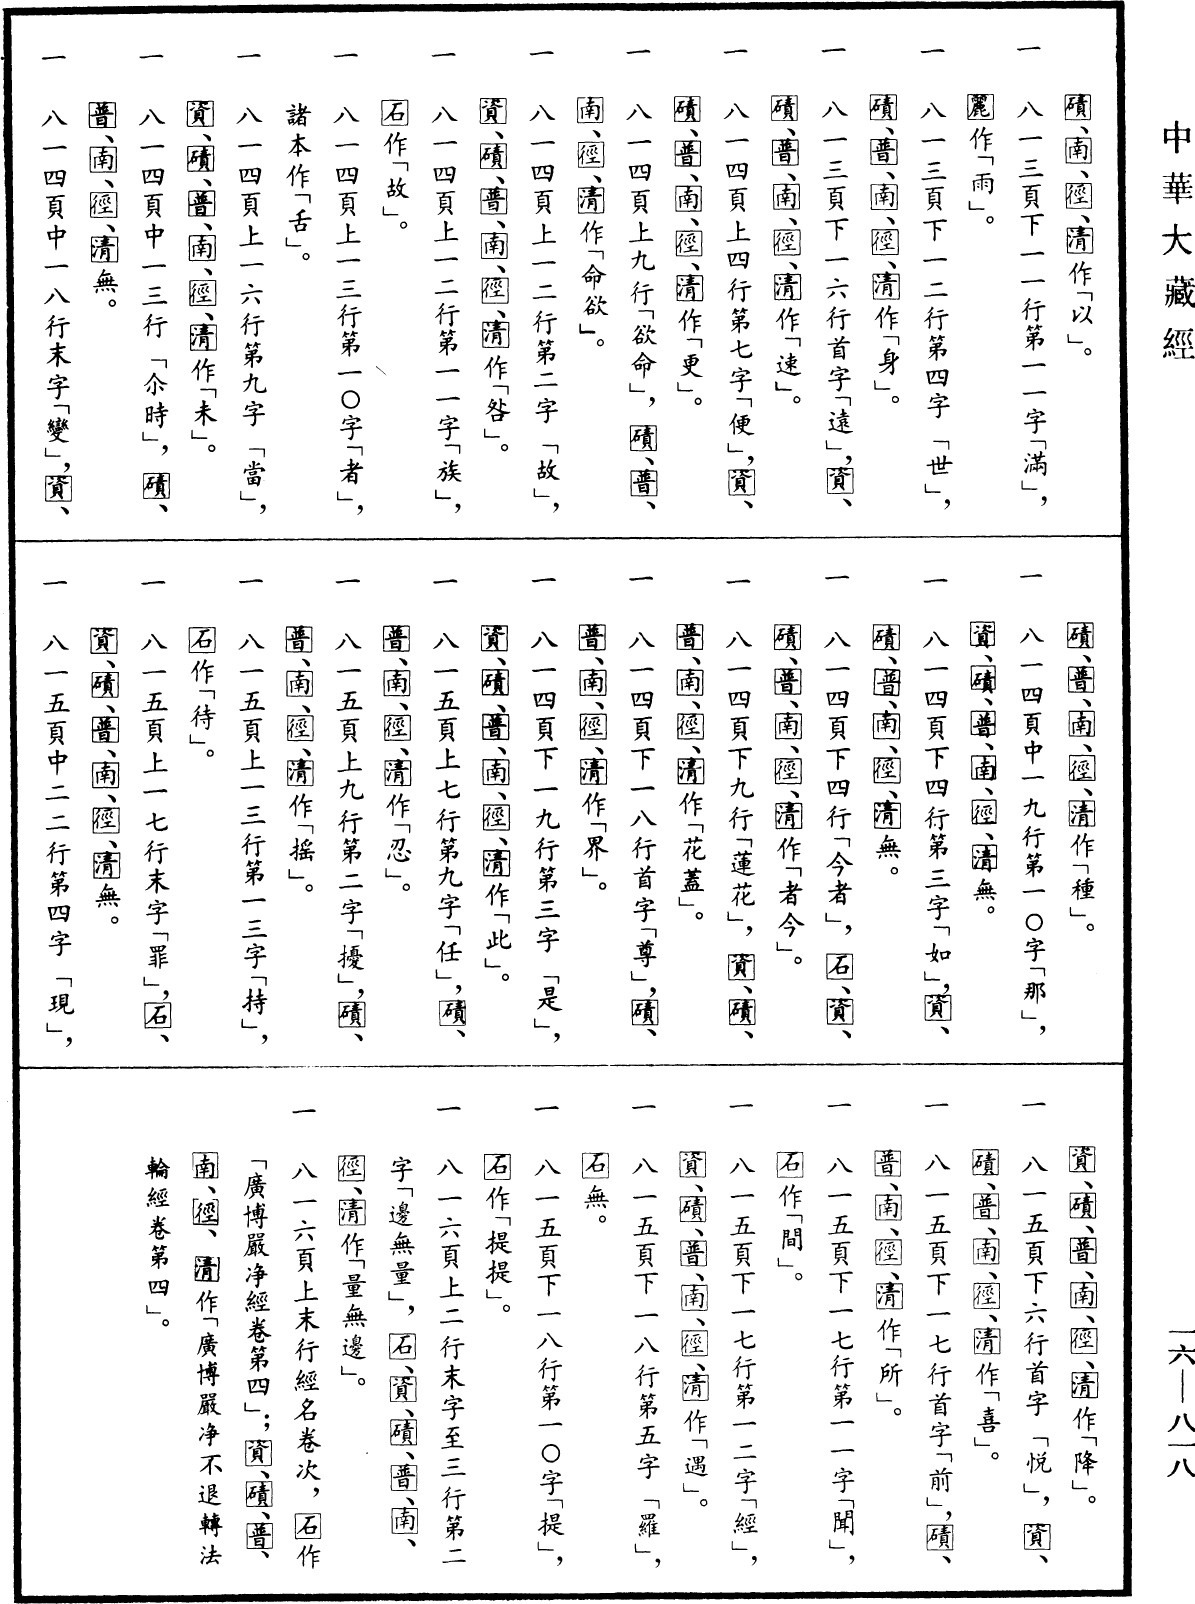 中華大藏經
磧、南、徑、清作「以」。
一　八一三頁下一一行第一一字「滿」，
麗作「雨」。
一　八一三頁下一二行第四字「世」，
磧、普、南、徑、清作「身」。
一　八一三頁下一六行首字「遠」，資、
磧、普、南、徑、清作「速」。
一　八一四頁上四行第七字「便」，資、
磧、普、南、徑、清作「更」。
一　八一四頁上九行「欲命」，磧、普、
南、徑、清作「命欲」。
一　八一四頁上一二行第二字「故」，
資、磧、普、南、徑、清作「咎」。
一　八一四頁上一二行第一一字「族」，
石作「故」。
一　八一四頁上一三行第一〇字「者」，
諸本作「舌」。
一　八一四頁上一六行第九字「當」，
資、磧、普、南、徑、清作「未」。
一　八一四頁中一三行「尒時」，磧、
普、南、徑、清無。
一　八一四頁中一八行末字「變」，資、
磧、普、南、徑、清作「種」。
一　八一四頁中一九行第一〇字「那」，
資、磧、普、南、徑、清無。
一　八一四頁下四行第三字「如」，資、
磧、普、南、徑、清無。
一　八一四頁下四行「今者」，石、資、
磧、普、南、徑、清作「者今」。
一　八一四頁下九行「蓮花」，資、磧、
普、南、徑、清作「花蓋」。
一　八一四頁下一八行首字「尊」，磧、
普、南、徑、清作「界」。
一　八一四頁下一九行第三字「是」，
資、磧、普、南、徑、清作「此」。
一　八一五頁上七行第九字「任」，磧、
普、南、徑、清作「忍」。
一　八一五頁上九行第二字「擾」，磧、
普、南、徑、清作「摇」。
一　八一五頁上一三行第一三字「持」，
石作「待」。
一　八一五頁上一七行末字「罪」，石、
資、磧、普、南、徑、清無。
一　八一五頁中二二行第四字「現」，
資、磧、普、南、徑、清作「降」。
一　八一五頁下六行首字「悦」，資、
磧、普、南、徑、清作「喜」。
一　八一五頁下一七行首字「前」，磧、
普、南、徑、清作「所」。
一　八一五頁下一七行第一一字「聞」，
石作「間」。
一　八一五頁下一七行第一二字「經」，
資、磧、普、南、徑、清作「遇」。
一　八一五頁下一八行第五字「羅」，
石無。
一　八一五頁下一八行第一〇字「提」，
石作「提提」。
一　八一六頁上二行末字至三行第二
字「邊無量」，石、資、磧、普、南、
徑、清作「量無邊」。
一　八一六頁上末行經名卷次，石作
「廣博嚴净經卷第四」；資、磧、普、
南、徑、清作「廣博嚴净不退轉法
輪經卷第四」。
一六—八一八